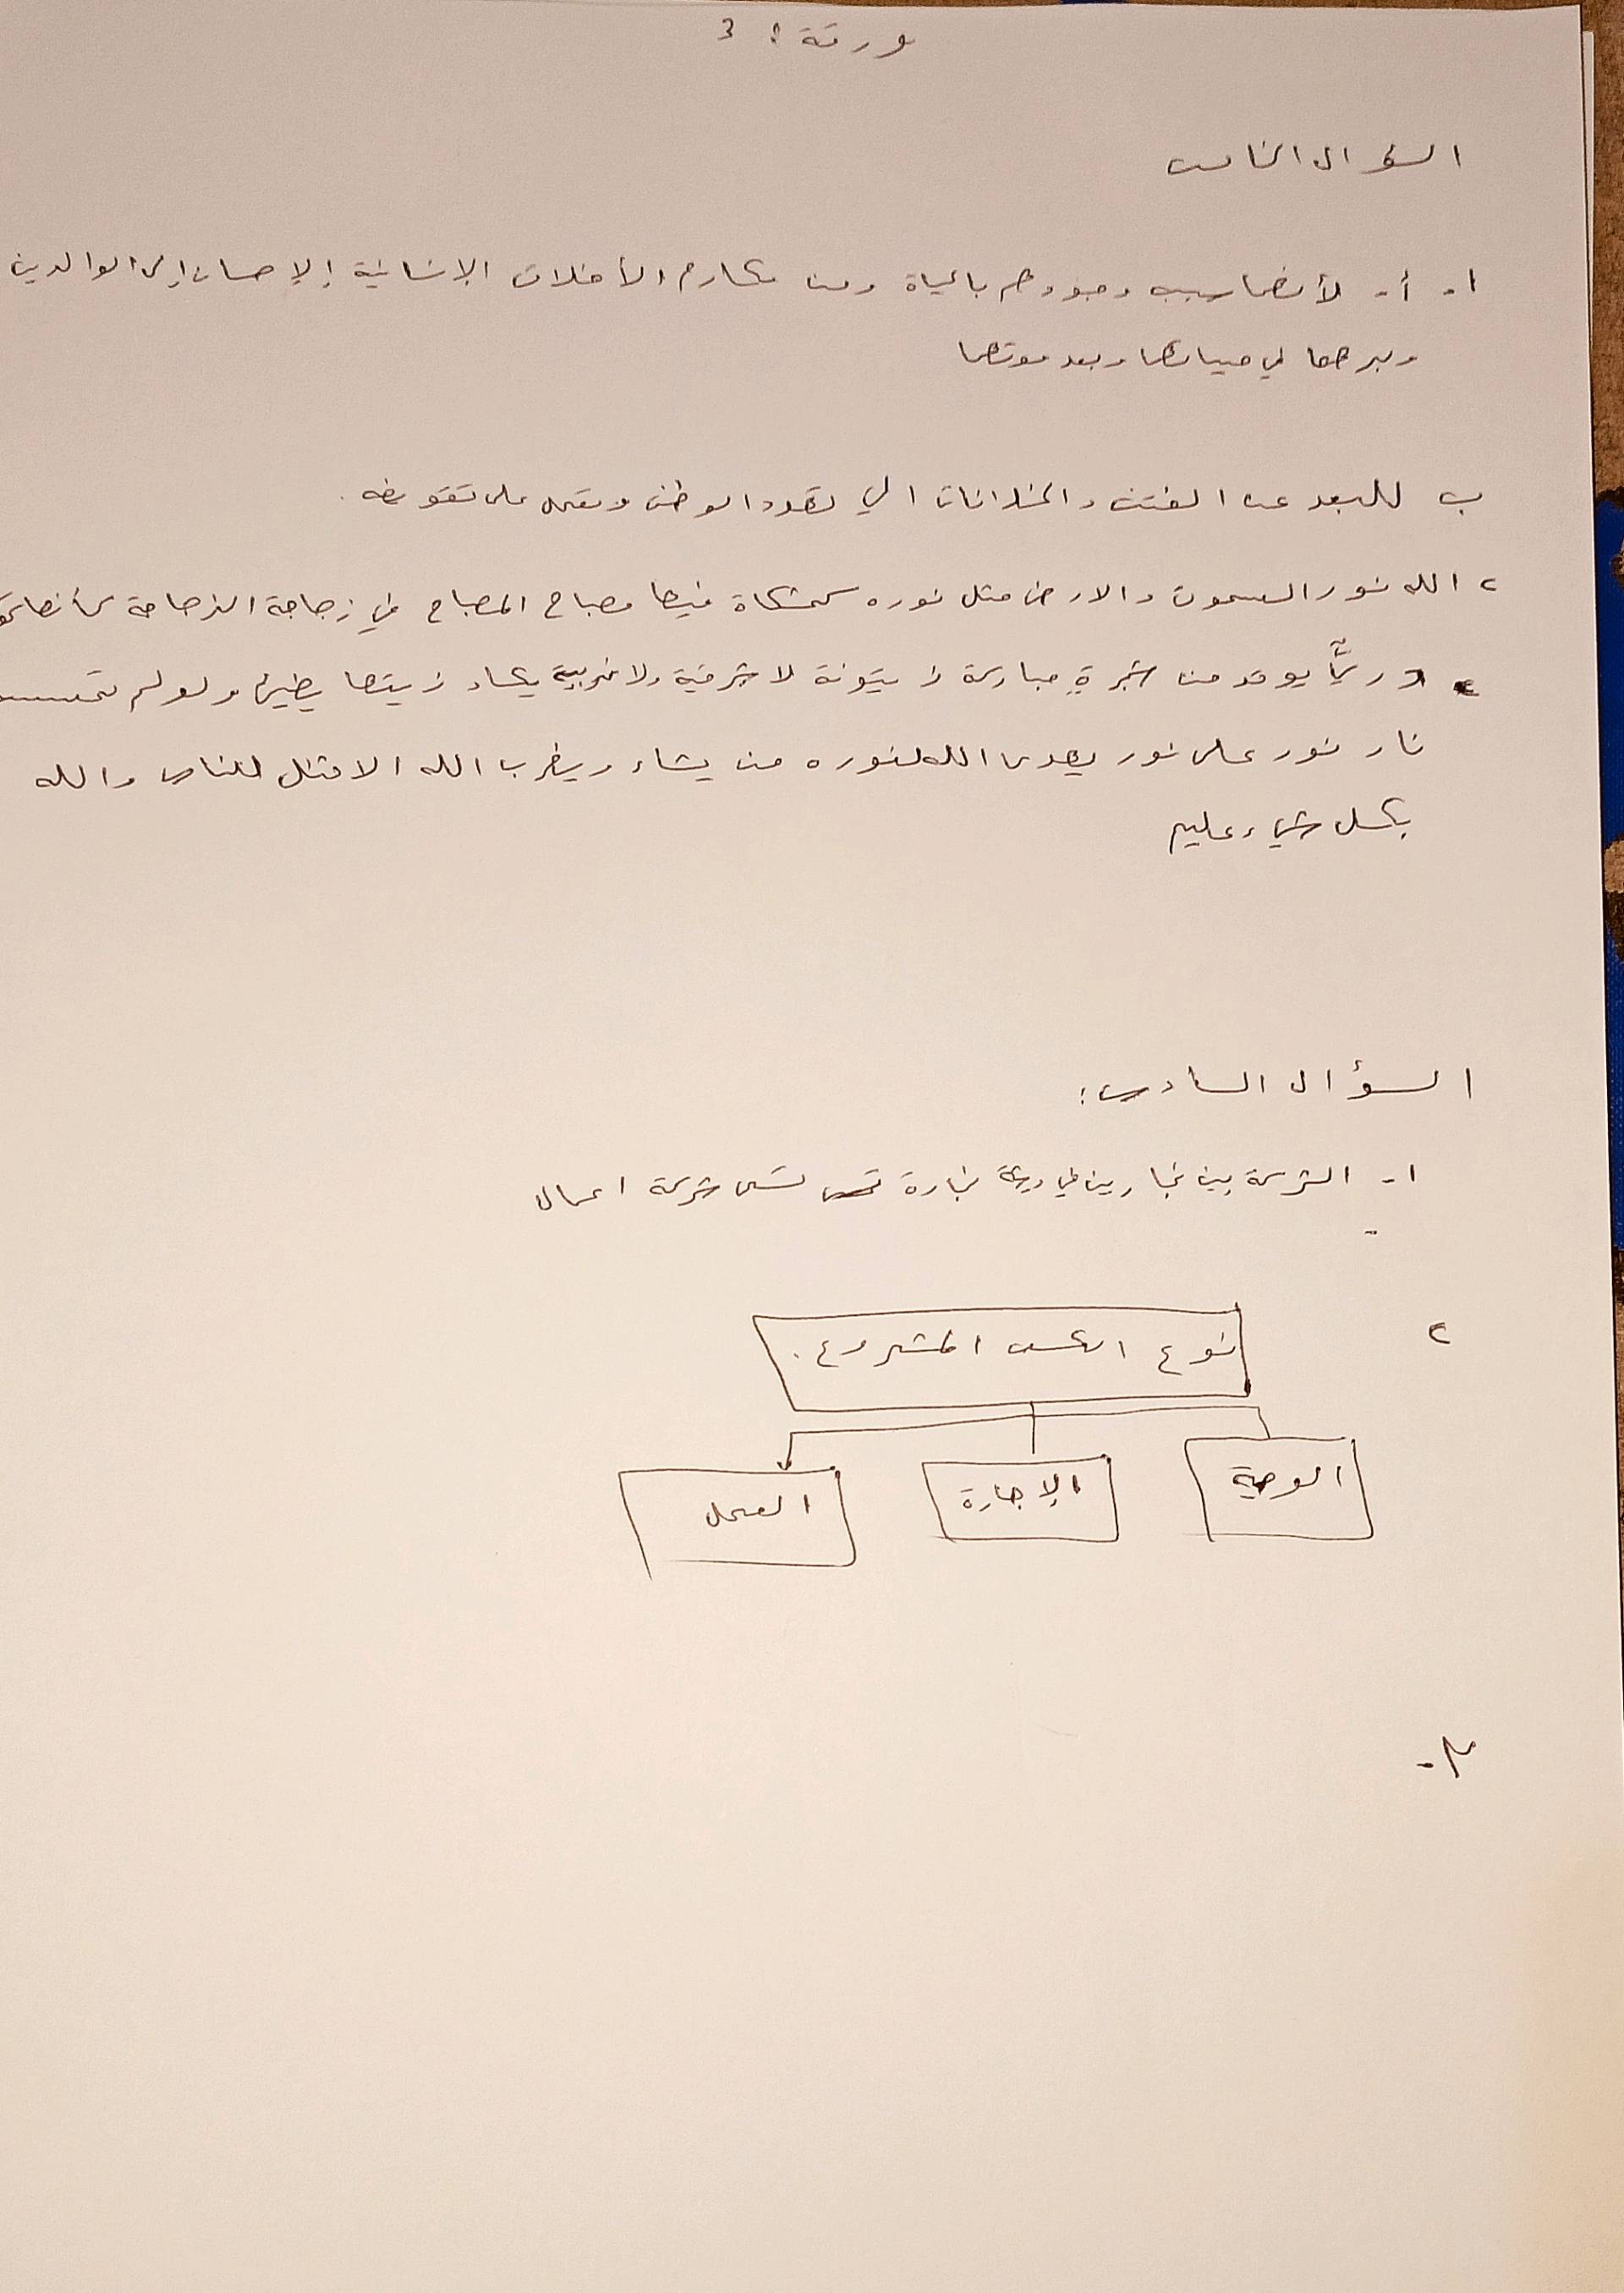 ورقة : 3
السؤال الخامس
١- أ- لأنهما سبب وجودهم بالحياة ومن مكارم الأخلاق الإنسانية الإحسان إلى الوالدين
وبرهما في حياتهما وبعد موتهما
ب للبعد عن الفتن والخلافات التي تهدد الوطن وتعمل على تقويضه .
٢ الله نور السموت والارض مثل نوره كمشكاة فيها مصباح المصباح في زجاجة الزجاجة كأنها كو
درِيٌّ يوقد من شجرةٍ مباركة زيتونة لا شرقية ولا غربية يكاد زيتها يضيئ ولو لم تمسسـ
نار نور على نور يهدى الله لنوره من يشاء ويضرب الله الامثل للناس والله
بكل شيء عليم
السؤال السادس :
١- الشركة بين نجارين في ورشة نجارة تسمى شركة اعمال
٢
نوع الكسب المشروع .
الوصية الإجارة العمل
٣-